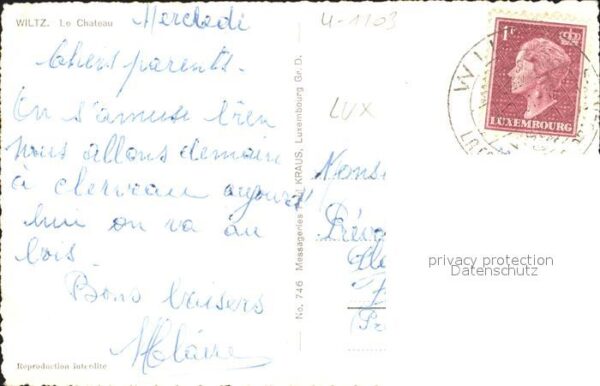 WILTZ. Le Chateau
Mercredi
Chers parents.
On s'amuse bien
nous allons demain
à clervau aujourd'
hui on va au
bois.
Bons baisers
Reproduction interdite
No. 746 Messageries KRAUS, Luxembourg Gr. D.
U-1103
LUX
1F
LUXEMBOURG
WIL
privacy protection
Datenschutz